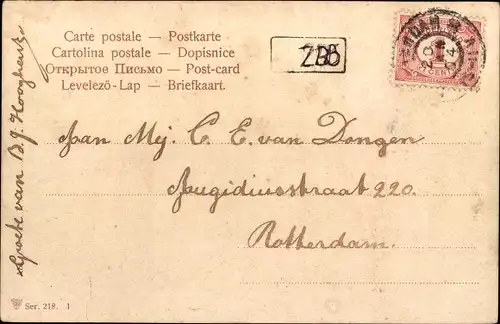 Carte postale — Postkarte
Cartolina postale — Dopisnice
Открытое Письмо — Post-card
Levelező-Lap — Briefkaart.
1 CENT
Aan Mej. C. E. van Dongen
220.
Rotterdam.
Groete van B. J.
Ser. 218. 1